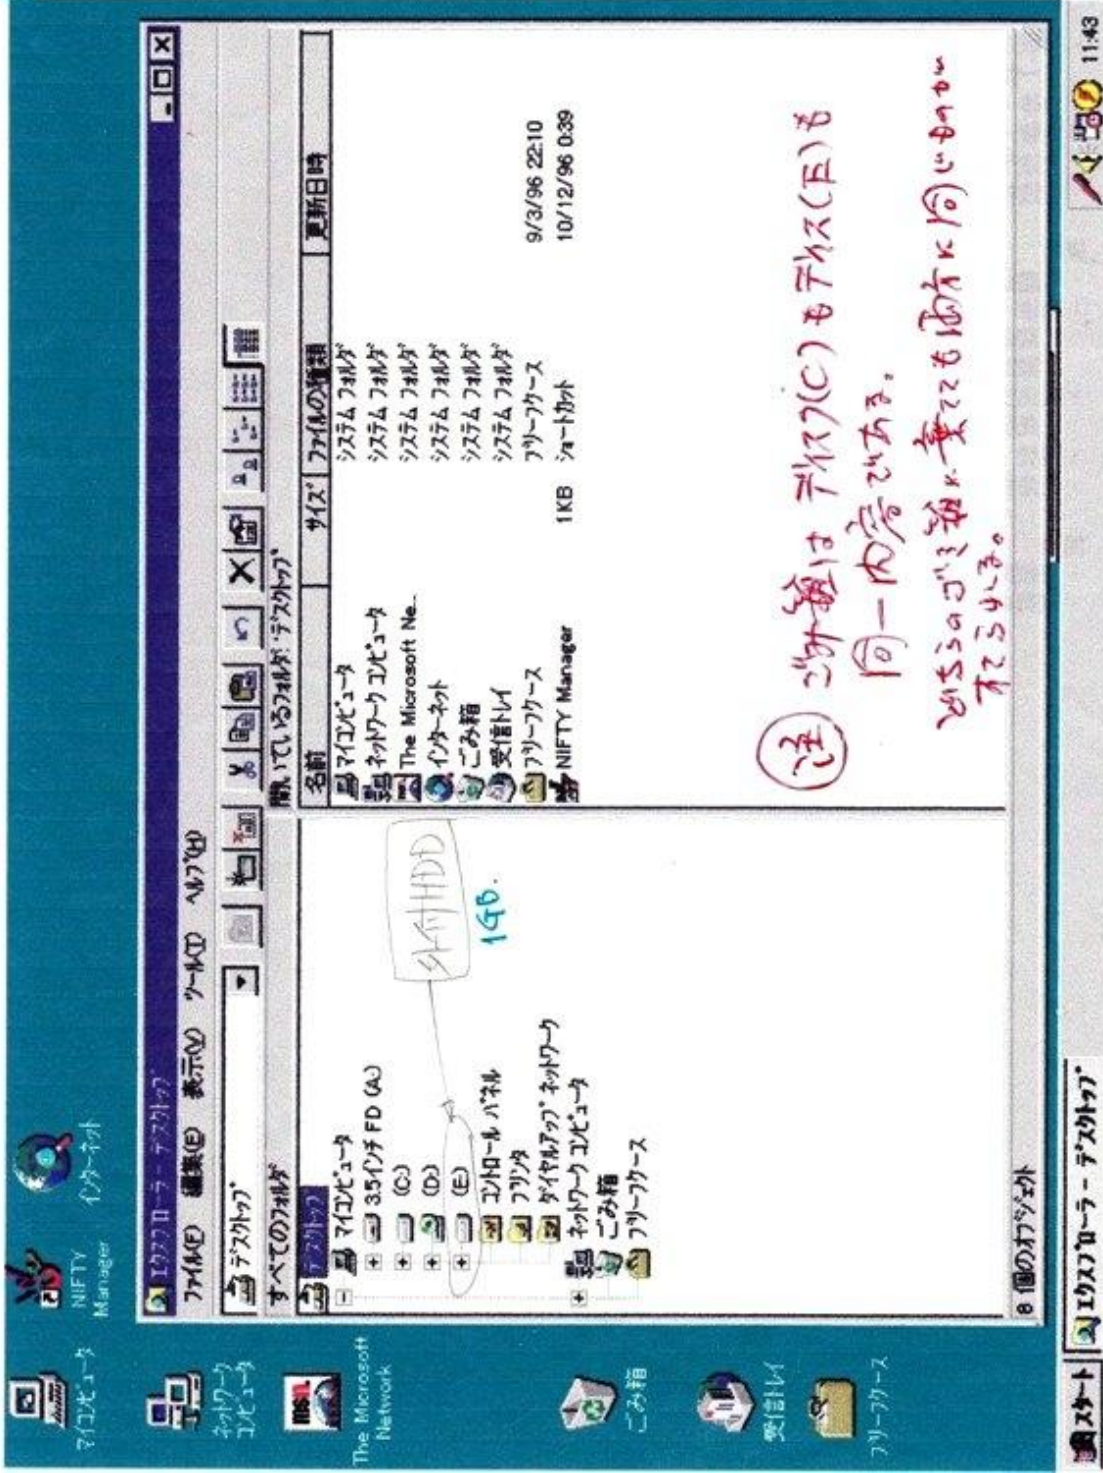 マイコンピュータ
NIFTY
Manager
インターネット
ネットワーク
コンピュータ
The Microsoft
Network
ごみ箱
受信トレイ
ブリーフケース
エクスプローラ - デスクトップ
ファイル(F) 編集(E) 表示(V) ツール(T) ヘルプ(H)
デスクトップ
すべてのフォルダ
開いているフォルダ: デスクトップ
デスクトップ
マイコンピュータ
3.5インチ FD (A:)
(C:)
(D:)
(E:)
コントロール パネル
プリンタ
ダイヤルアップ ネットワーク
ネットワーク コンピュータ
ごみ箱
ブリーフケース
外付HDD
1GB.
名前 サイズ ファイルの種類 更新日時
マイコンピュータ システム フォルダ
ネットワーク コンピュータ システム フォルダ
The Microsoft Ne... システム フォルダ
インターネット システム フォルダ
ごみ箱 システム フォルダ
受信トレイ システム フォルダ
ブリーフケース ブリーフケース 9/3/96 22:10
NIFTY Manager 1KB ショートカット 10/12/96 0:39
注 ごみ箱は ディスク(C)もディスク(E)も
同一内容である。
どちらのゴミ箱に棄てても両方に同じものが
すてられる。
8 個のオブジェクト
スタート エクスプローラ - デスクトップ 11:43